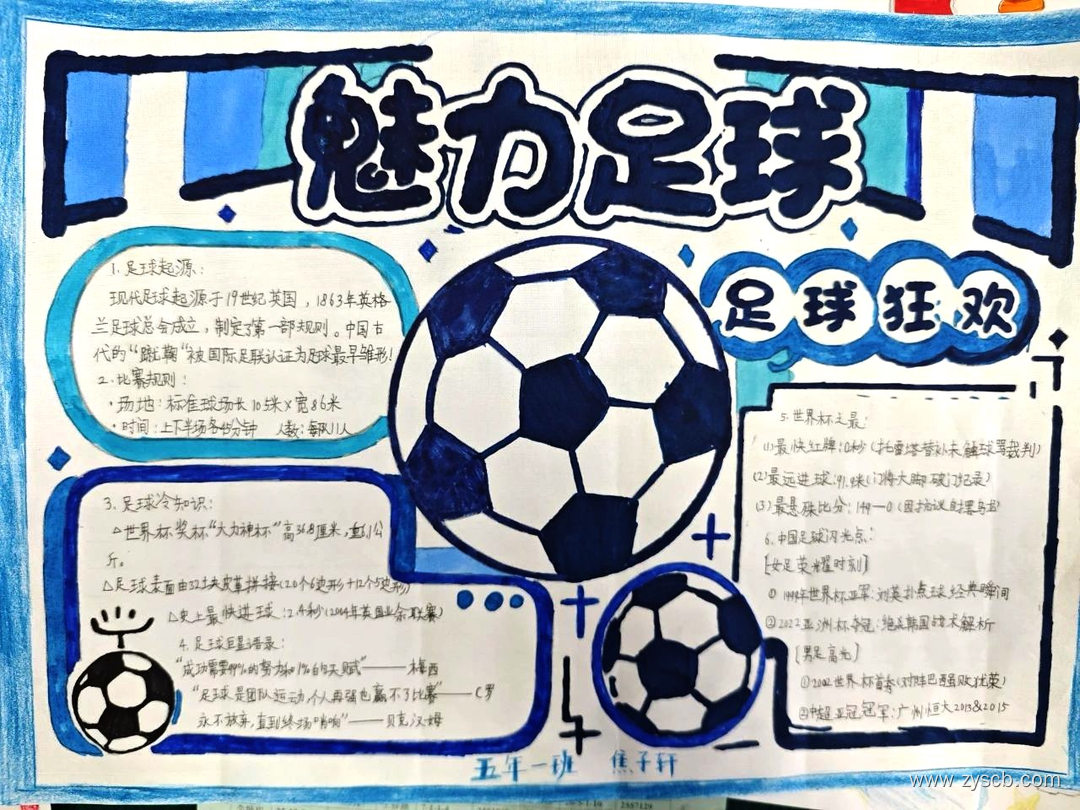 魅力足球
足球狂欢
1. 足球起源:
现代足球起源于19世纪英国，1863年英格
兰足球总会成立，制定了第一部规则。中国古
代的“蹴鞠”被国际足联认证为足球最早雏形!
2. 比赛规则:
·场地:标准球场长105米x宽68米
·时间:上下半场各45分钟 人数:每队11人
3. 足球冷知识:
△世界杯奖杯“大力神杯”高36.8厘米,重6.1公
斤。
△足球表面由32块皮革拼接(20个6边形+12个5边形)
△史上最快进球:2.4秒(2004年英国业余联赛)
4. 足球巨星语录:
“成功需要99%的努力和1%的天赋”——梅西
“足球是团队运动,个人再强也赢不了比赛”——C罗
永不放弃,直到终场哨响”——贝克汉姆
5. 世界杯之最:
(1)最快红牌:0秒(托雷塔替补未触球骂裁判)
(2)最远进球:91.9米(门将大脚破门纪录)
(3)最悬殊比分:149—0(因抗议自摆乌龙)
6. 中国足球闪光点:
[女足荣耀时刻]
①1999年世界杯亚军:刘英扑点球经典瞬间
②2022亚洲杯夺冠:绝杀韩国战术解析
[男足高光]
①2002世界杯首秀(对阵巴西虽败犹荣)
②中超亚冠冠军:广州恒大2013&2015
五年一班 焦子轩
www.zyscb.com